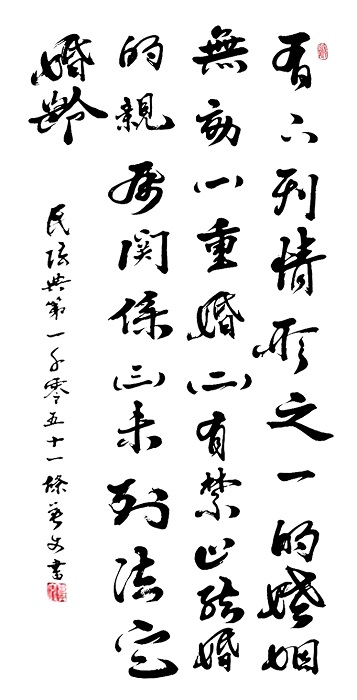 有下列情形之一的婚姻
無効(一)重婚(二)有禁止結婚
的親屬関係(三)未到法定
婚齡
民法典第一千零五十一條 書